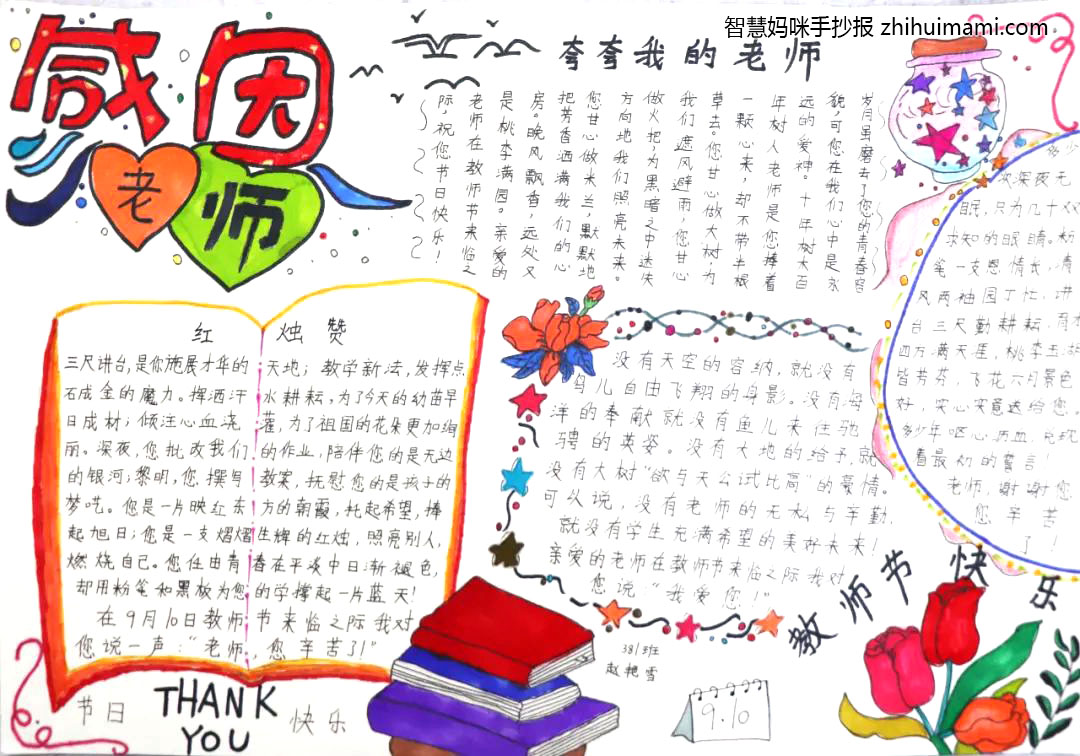 智慧妈咪手抄报 zhihuimami.com
感恩
老师
夸夸我的老师
岁月虽磨去了您的青春容
貌,可您在我们心中是永
远的爱神。十年树木百
年树人老师是您捧着
一颗心来,却不带半根
草去您甘心做大树,为
我们遮风避雨,您甘心
做火把,为黑暗之中迷失
方向地我们照亮未来。
您甘心做米兰,默默地
把芳香洒满我们的心
房。晚风飘香 远处又
是桃李满园。亲爱的
老师在教师节来临之
际,祝您节日快乐!
红 烛 赞
三尺讲台,是你施展才华的 天地;教学新法,发挥点
石成金的魔力。挥洒汗 水耕耘,为了今天的幼苗早
日成材;倾注心血浇 灌,为了祖国的花朵更加绚
丽。深夜,您批改我们 的作业,陪伴您的是无边
的银河;黎明,您撰写 教案,抚慰您的是孩子的
梦呓。您是一片映红东 方的朝霞,托起希望,捧
起旭日;您是一支熠熠生辉的红烛,照亮别人,
燃烧自己。您任由青春在平淡中日渐褪色,
却用粉笔和黑板为您的学撑起一片蓝天!
在9月10日教师节来临之际我对
您说一声:“老师,您辛苦了!”
没有天空的容纳,就没有
鸟儿自由飞翔的身影。没有海
洋的奉献就没有鱼儿来往驰
骋的英姿。没有大地的给予就
没有大树“欲与天公试比高”的豪情。
可以说,没有老师的无私与辛勤,
就没有学生充满希望的美好未来!
亲爱的老师在教师节来临之际我对
您说“我爱您!”
多少
次深夜无
眠,只为几十双
求知的眼睛。粉
笔一支恩情长,清
风两袖园丁忙,讲
台三尺勤耕耘,育
四方满天涯,桃李五湖
皆芳芬,飞花六月景色
好,实心实意送给您。
多少年呕心沥血,兑现
着最初的誓言!
老师,谢谢您
您辛苦
了!
教师节快乐
381班
赵艳雪
9.10
节日
THANK
YOU
快乐